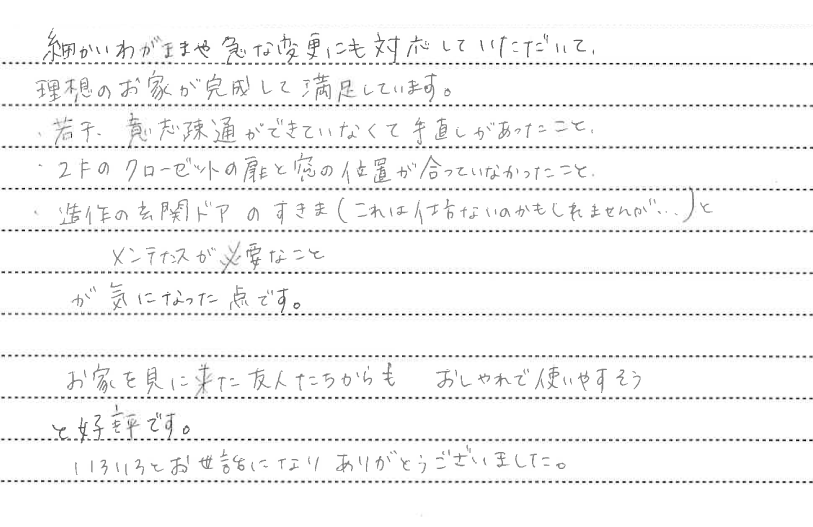 細かいわがままや急な変更にも対応していただいて、
理想のお家が完成して満足しています。
・若干、意志疎通ができていなくて手直しがあったこと、
・2Fのクローゼットの扉と窓の位置が合っていなかったこと、
・造作の玄関ドアのすきま(これは仕方ないのかもしれませんが…)と
メンテナスが必要なこと
が気になった点です。
お家を見に来た友人たちからも おしゃれで使いやすそう
と好評です。
いろいろとお世話になりありがとうございました。